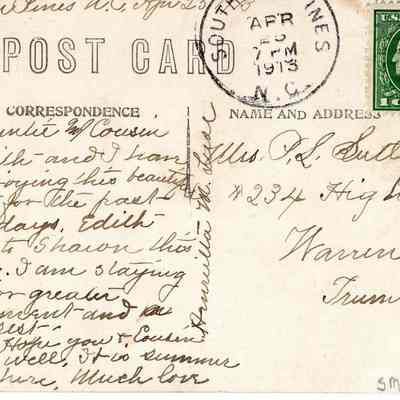 Pines N.C. Apr 25
POST CARD
SOUTH PINES
APR
25
7 PM
1913
N.C.
U.S.
CORRESPONDENCE
NAME AND ADDRESS
untie & Cousin
ith and I have
oying this beauty
for the past
days. Edith
to Sharon this
I am staying
or greater
ment and
rest
Hope you & Cousin
well. It is summer
here. Much love
Henrietta M.
Mrs. P. L. Sutl
#234 High
Warren
Trum
SM